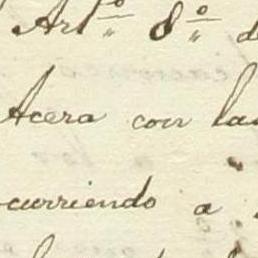 Artº 8º d
Acera con la
curriendo a